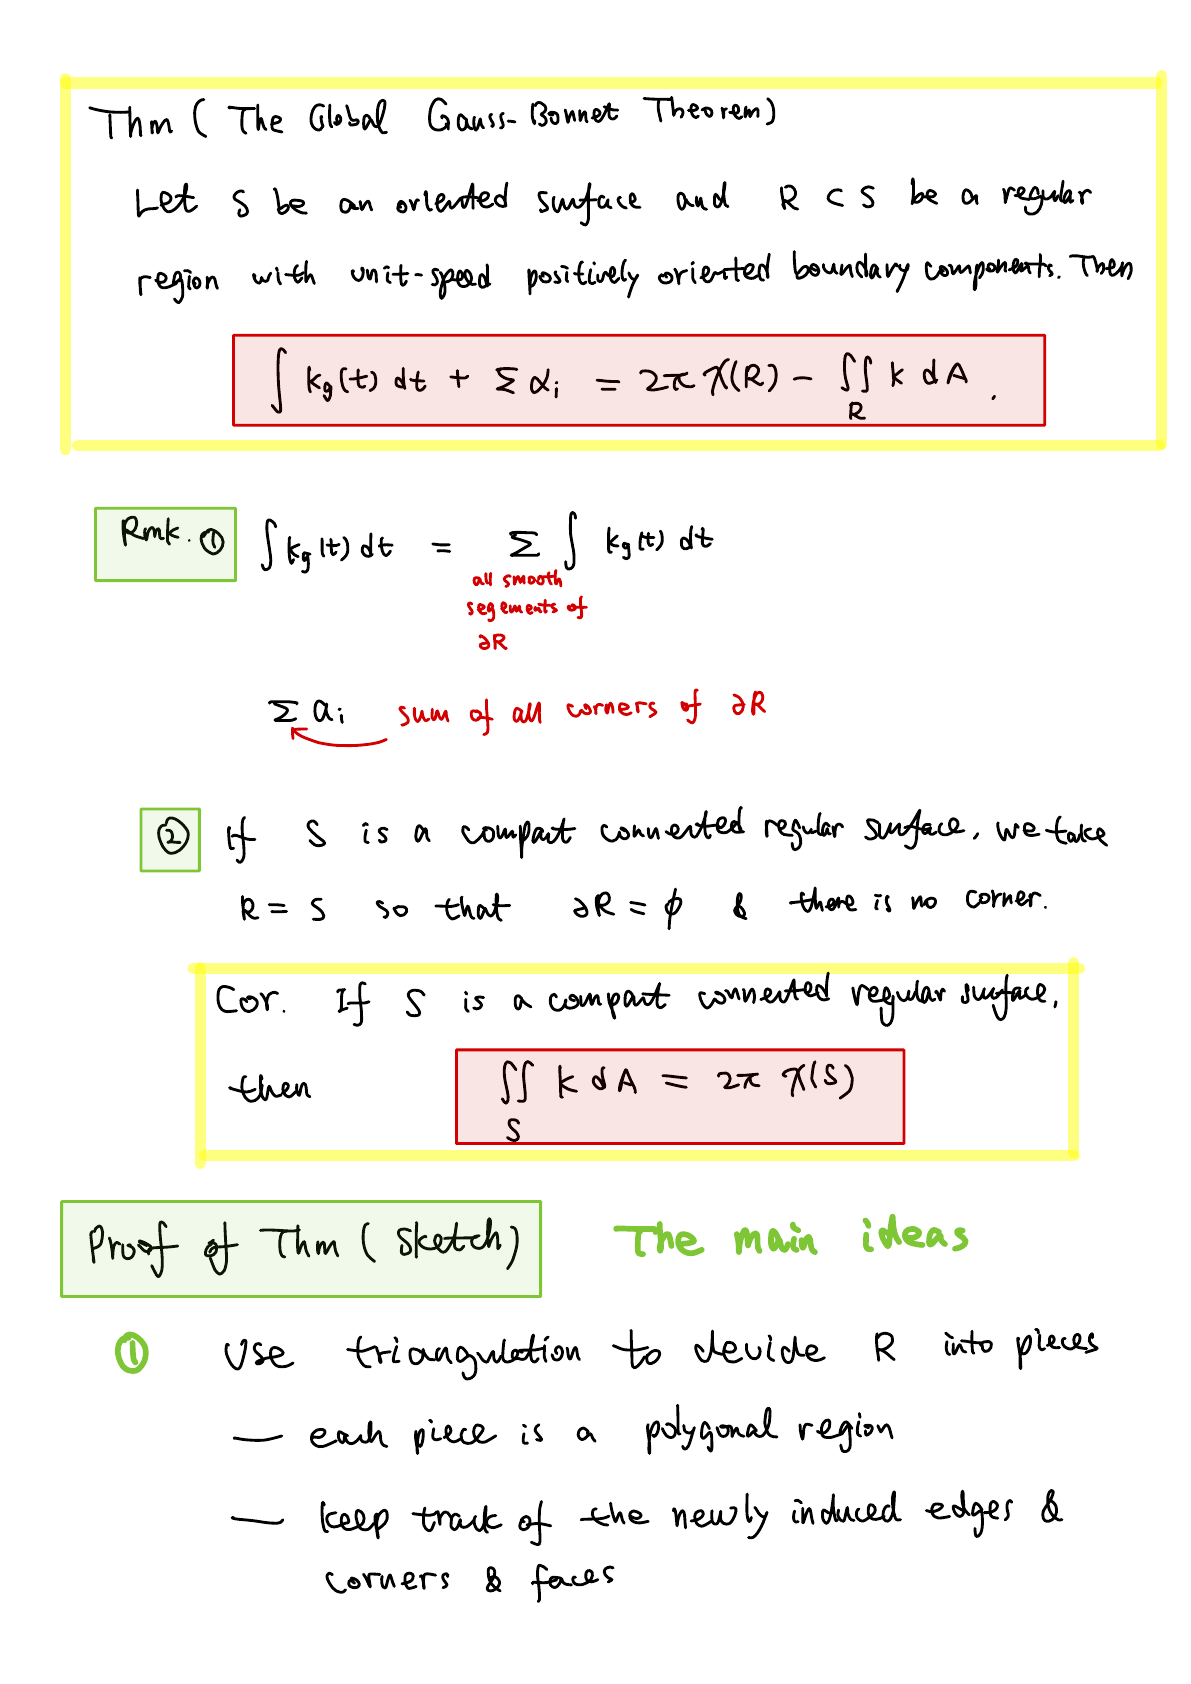 Thm ( The Global Gauss-Bonnet Theorem)
Let S be an oriented surface and R ⊂ S be a regular
region with unit-speed positively oriented boundary components. Then
∫ kg(t) dt + Σ αi = 2π χ(R) - ∬R k dA .
Rmk. ① ∫ kg(t) dt = Σ ∫ kg(t) dt
all smooth
segements of
∂R
Σ αi sum of all corners of ∂R
② If S is a compact connected regular surface, we take
R = S so that ∂R = ϕ & there is no corner.
Cor. If S is a compact connected regular surface,
then ∬S k dA = 2π χ(S)
Proof of Thm ( Sketch) The main ideas
① Use triangulation to devide R into pieces
— each piece is a polygonal region
— keep track of the newly induced edges &
corners & faces